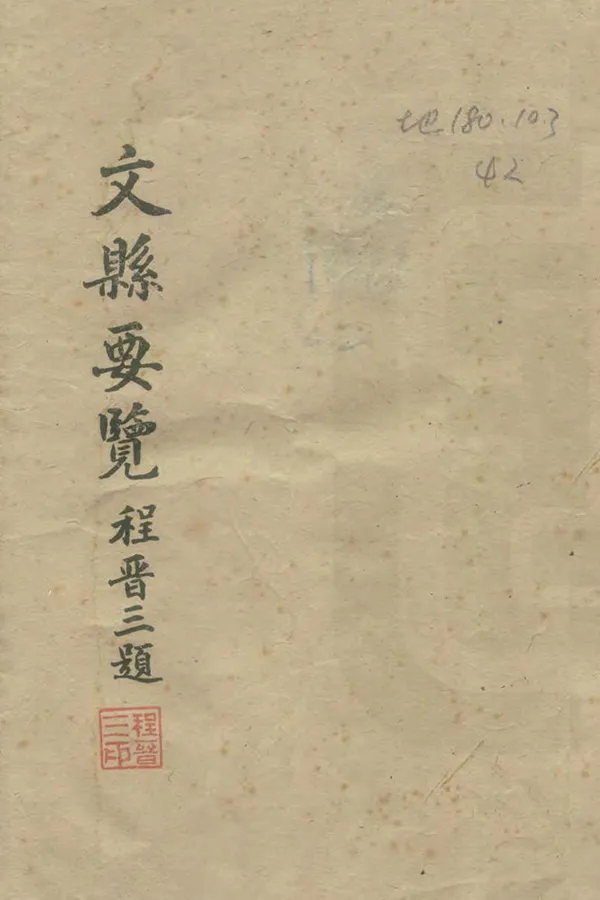 地180.103
42
文縣要覽 程晋三題
程晋三印